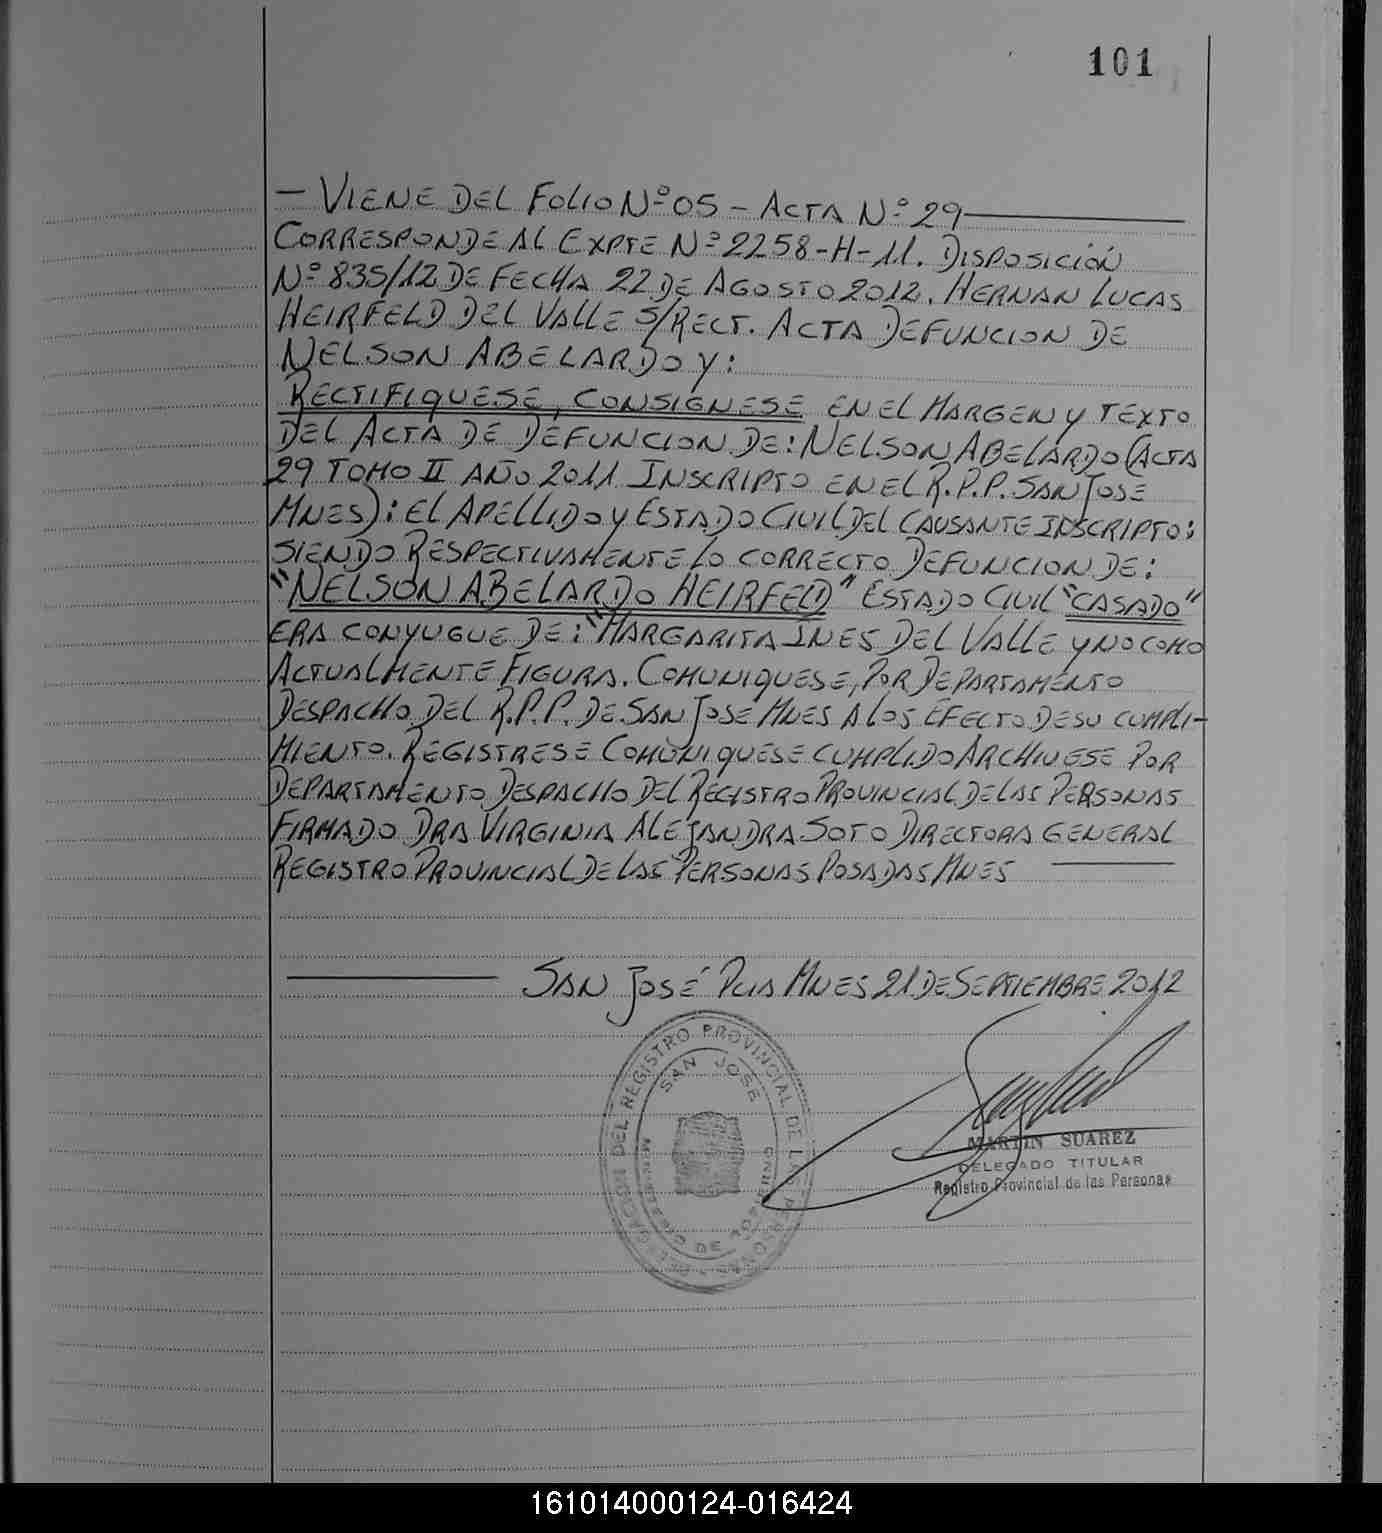 101
— VIENE DEL FOLIO Nº 05 - ACTA Nº 29 —
CORRESPONDE AL EXPTE Nº 2258-H-11. DISPOSICIÓN
Nº 835/12 DE FECHA 22 DE AGOSTO 2012. HERNAN LUCAS
HEIRFELD DEL VALLE S/RECT. ACTA DEFUNCION DE
NELSON ABELARDO Y:
RECTIFIQUESE, CONSIGNESE EN EL MARGEN Y TEXTO
DEL ACTA DE DEFUNCION DE: NELSON ABELARDO (ACTA
29 TOMO II AÑO 2011 INSCRIPTO EN EL R.P.P. SAN JOSE
MNES): EL APELLIDO Y ESTADO CIVIL DEL CAUSANTE INSCRIPTO:
SIENDO RESPECTIVAMENTE LO CORRECTO DEFUNCION DE:
"NELSON ABELARDO HEIRFELD" ESTADO CIVIL "CASADO"
ERA CONYUGUE DE: "MARGARITA INES DEL VALLE Y NO COMO
ACTUALMENTE FIGURA. COMUNIQUESE, POR DEPARTAMENTO
DESPACHO DEL R.P.P. DE SAN JOSE MNES A LOS EFECTO DE SU CUMPLI-
MIENTO. REGISTRESE COMUNIQUESE CUMPLIDO ARCHIVESE POR
DEPARTAMENTO DESPACHO DEL REGISTRO PROVINCIAL DE LAS PERSONAS
FIRMADO DRA VIRGINIA ALEJANDRA SOTO DIRECTORA GENERAL
REGISTRO PROVINCIAL DE LAS PERSONAS POSADAS MNES —
— SAN JOSÉ PCIA MNES 21 DE SEPTIEMBRE 2012
DELEGACION DEL REGISTRO PROVINCIAL DE LAS PERSONAS
SAN JOSE
MARTIN SUAREZ
DELEGADO TITULAR
Registro Provincial de las Personas
161014000124-016424